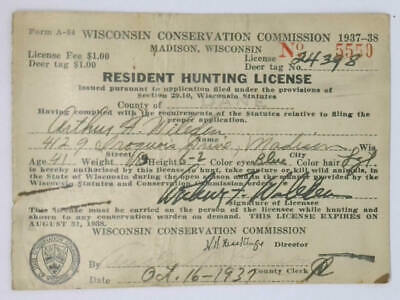 Form A-84 WISCONSIN CONSERVATION COMMISSION 1937-38
MADISON, WISCONSIN No 5559
License Fee $1.00 License No. 24398
Deer tag $1.00 Deer tag No.
RESIDENT HUNTING LICENSE
Issued pursuant to application filed under the provisions of
Section 29.10, Wisconsin Statutes
County of DANE
Having complied with the requirements of the Statutes relating of the
proper application.
Arthur
429 Iroquois Drive, Madison Wis
Street City
Age 41 Weight Height 6-2 Color eyes Blue Color hair Lgt
is hereby authorized by this license to hunt, take, capture or kill wild animals, in
the State of Wisconsin during the open season and in the manner provided in Wisconsin
Statutes and Conservation Commission orders
Signature of Licensee
This license must be carried on the person of the licensee while hunting and
shown to any conservation warden on demand. THIS LICENSE EXPIRES ON
AUGUST 31, 1938.
WISCONSIN CONSERVATION COMMISSION
Director
By
County Clerk
Date Oct. 16-1937